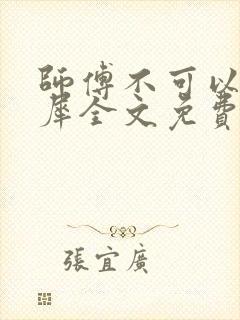 師傅不可以
犀全文免費
張宜廣